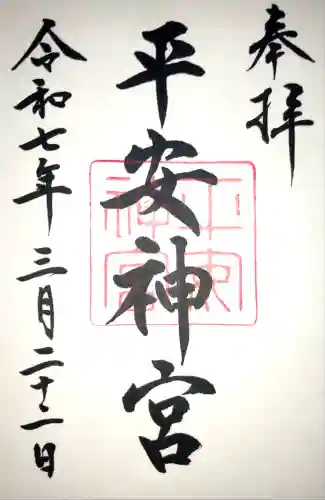 奉拝
平安神宮
令和七年三月二十二日